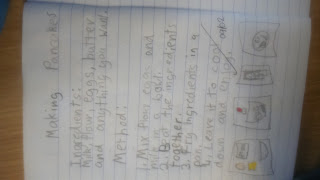 Making Pancakes
Ingredients:
Milk, flour, eggs, butter
and anything you want.
Method:
1. Mix flour, egg, and
milk in a bowl.
2. all the ingredients
together.
3. Fry ingredients in a
4. Leave it to cool
down and enjoy.